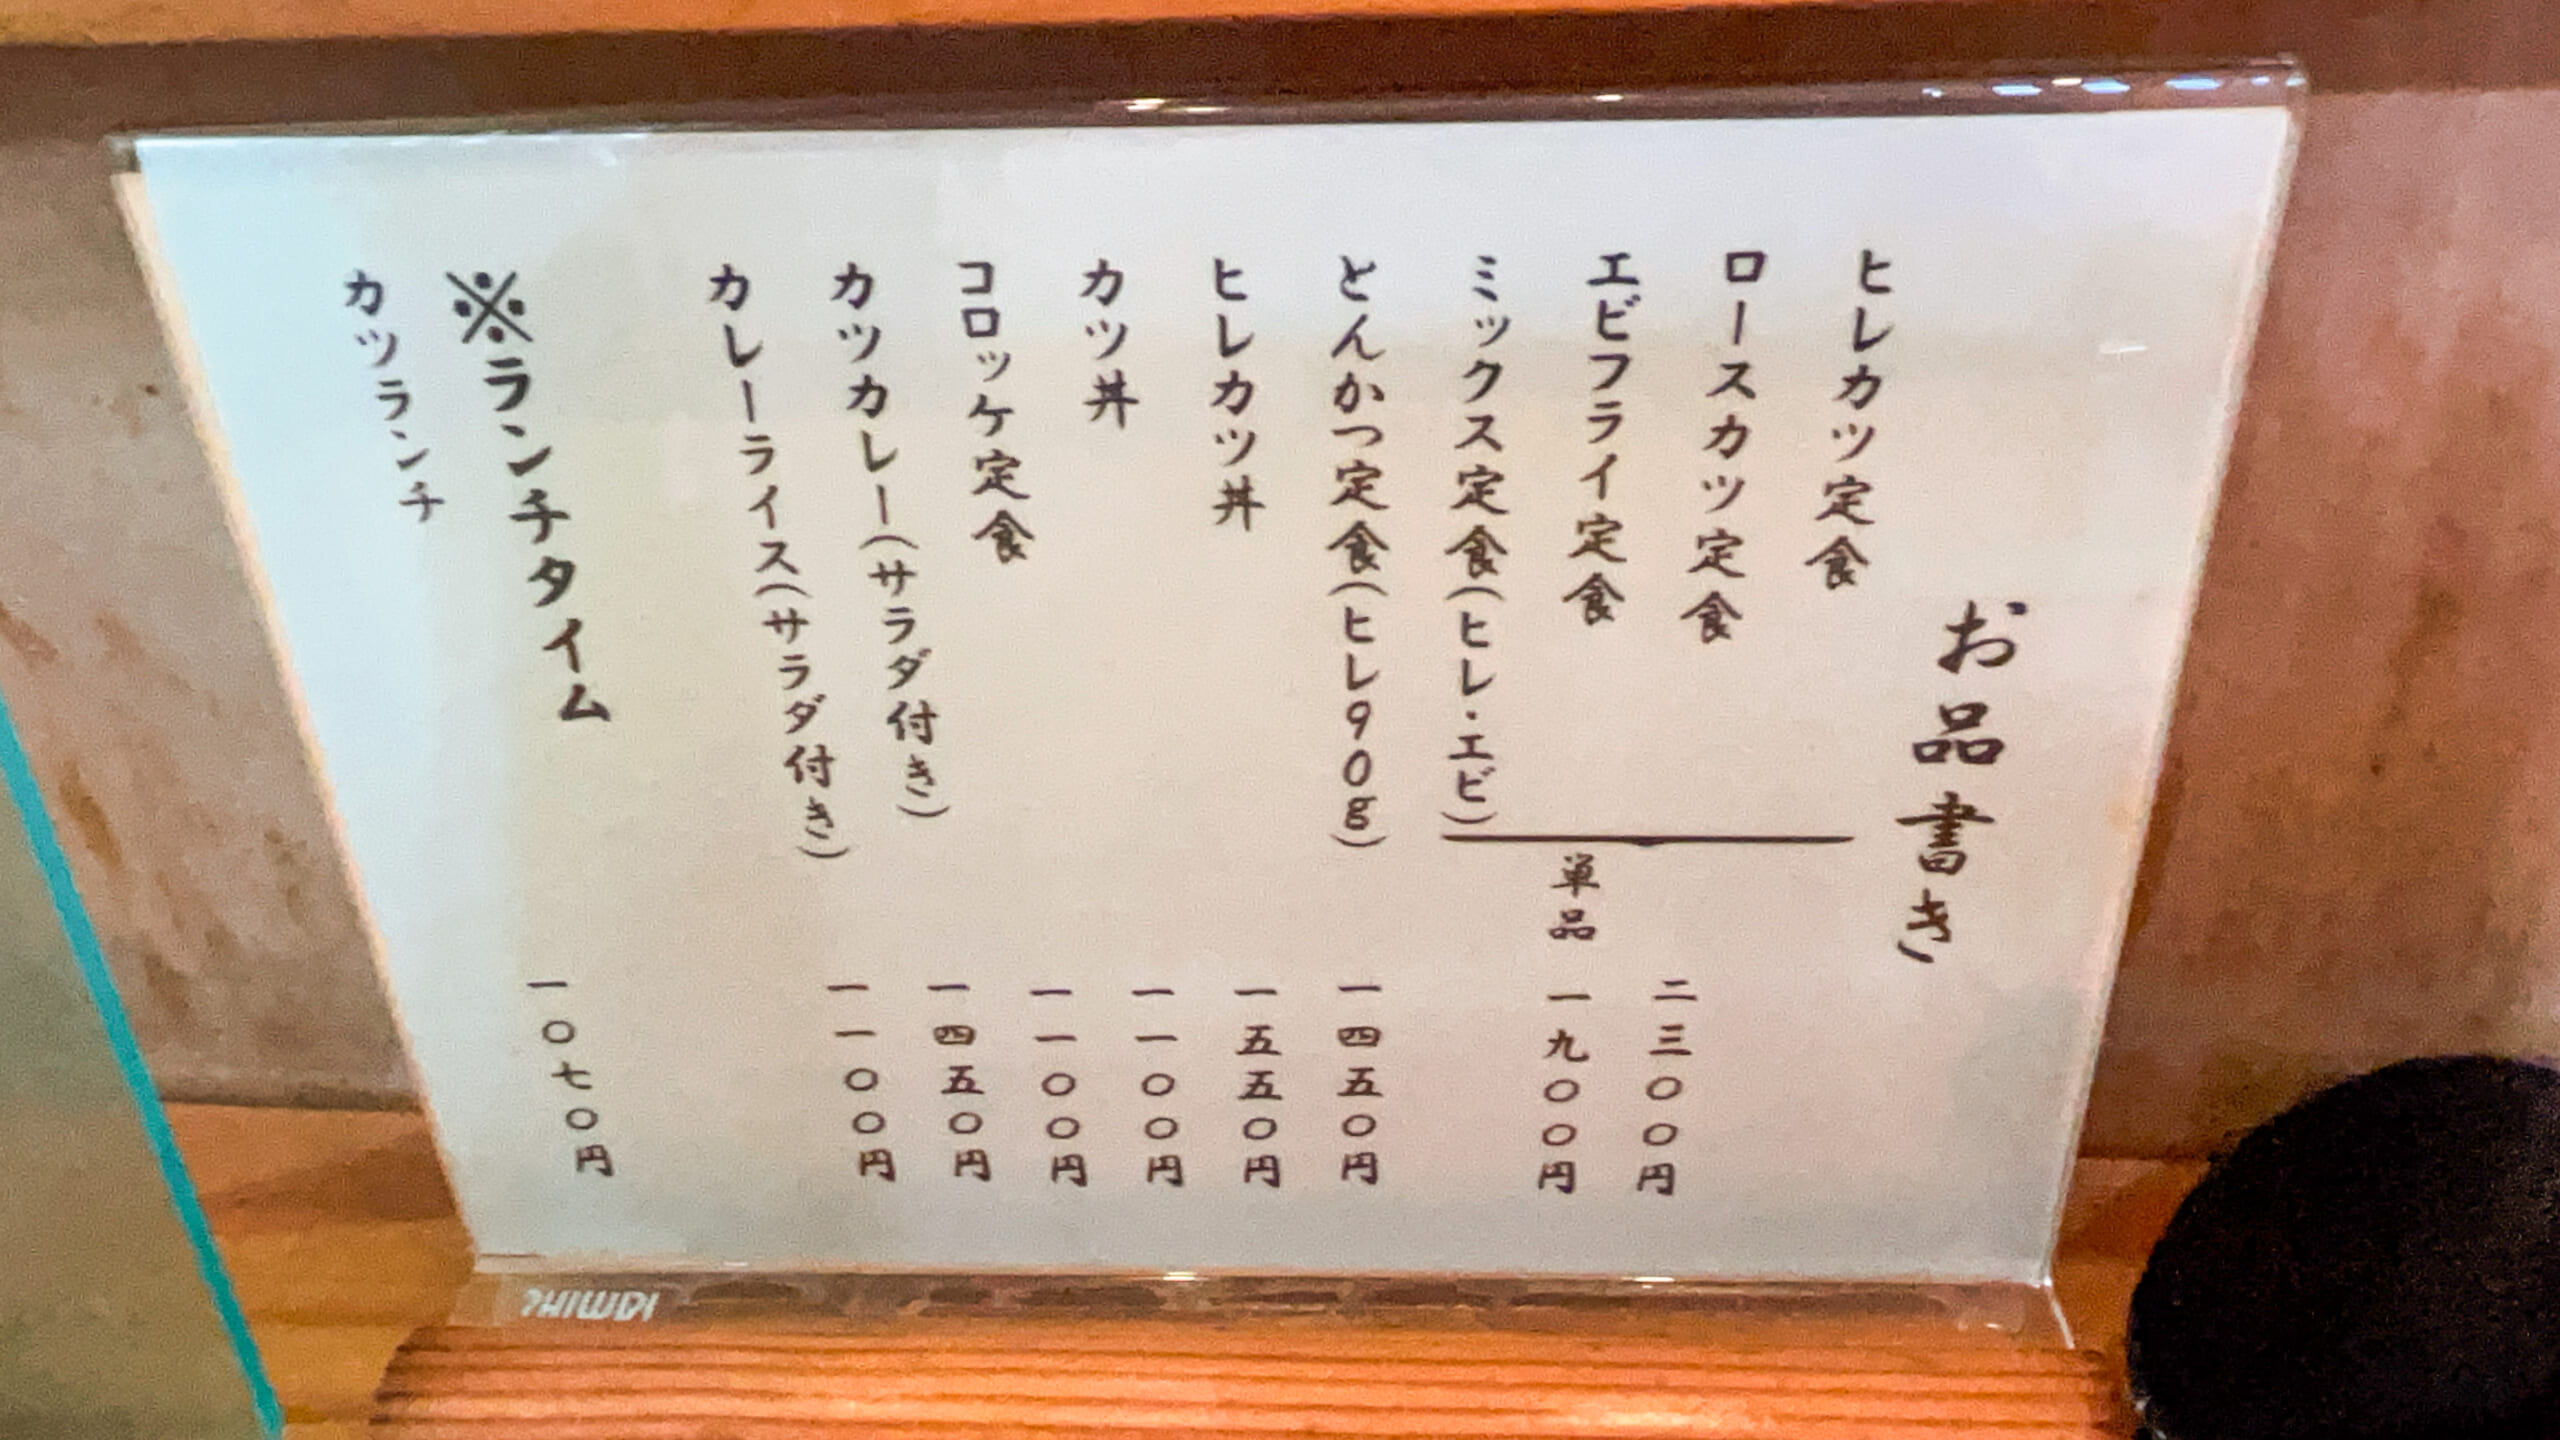 お品書き
ヒレカツ定食
ロースカツ定食
エビフライ定食
ミックス定食(ヒレ・エビ)
二三〇〇円
単品 一九〇〇円
とんかつ定食(ヒレ90g) 一四五〇円
ヒレカツ丼 一五五〇円
カツ丼 一一〇〇円
コロッケ定食 一一〇〇円
カツカレー(サラダ付き) 一四五〇円
カレーライス(サラダ付き) 一一〇〇円
※ランチタイム
カツランチ 一〇七〇円
SHIMBI